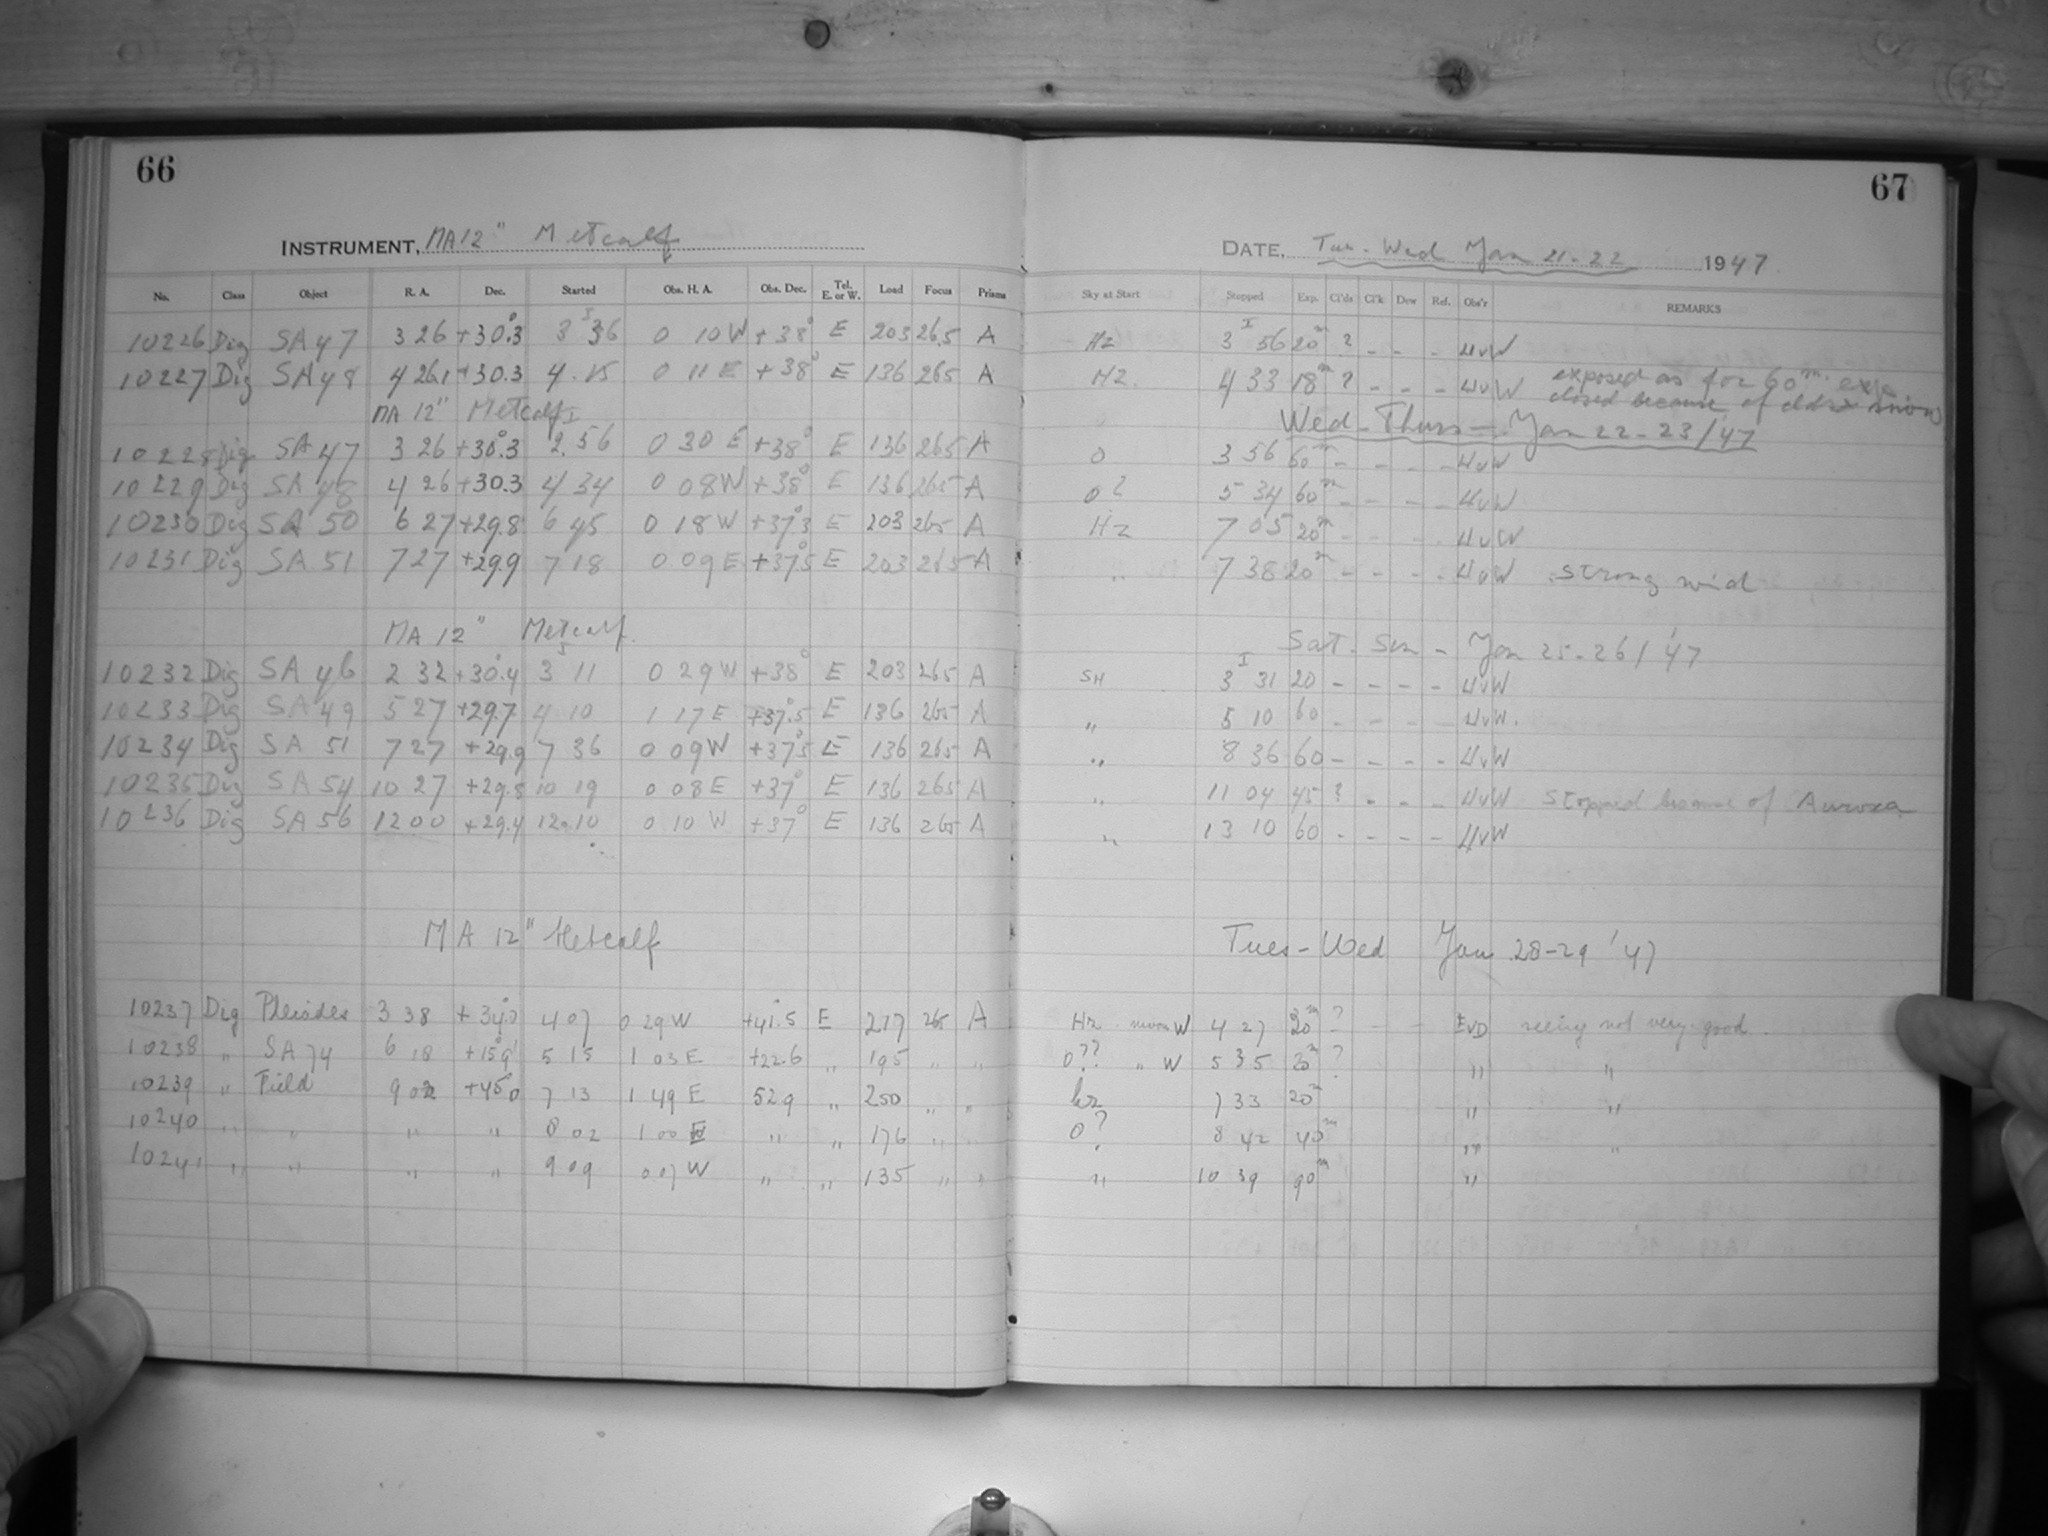 66
INSTRUMENT, MA 12" Metcalf
No. Class Object R. A. Dec. Started Obs. H. A. Obs. Dec. Tel. E. or W. Load Focus Prisms
10226 Dig SA 47 3 26 +30°.3 3 I 36 0 10 W +38° E 203 265 A
10227 Dig SA 48 4 26.1 +30.3 4.15 0 11 E +38° E 136 265 A
MA 12" Metcalf
10228 Dig SA 47 3 26 +30°.3 2 I 56 0 30 E +38° E 136 265 A
10229 Dig SA 48 4 26 +30.3 4 34 0 08 W +38° E 136 265 A
10230 Dig SA 50 6 27 +29.8 6 45 0 18 W +37°3 E 203 265 A
10231 Dig SA 51 7 27 +29.9 7 18 0 09 E +37°5 E 203 265 A
MA 12" Metcalf
10232 Dig SA 46 2 32 +30°.4 3 I 11 0 29 W +38° E 203 265 A
10233 Dig SA 49 5 27 +29.7 4 10 1 17 E +37°.5 E 136 265 A
10234 Dig SA 51 7 27 +29.9 7 36 0 09 W +37°5 E 136 265 A
10235 Dig SA 54 10 27 +29.8 10 19 0 08 E +37° E 136 265 A
10236 Dig SA 56 12 00 +29.4 12 10 0 10 W +37° E 136 265 A
MA 12" Metcalf
10237 Dig Pleiades 3 38 +34°.0 4 07 0 29 W +41.5 E 277 265 A
10238 " SA 74 6 18 +15°9' 5 15 1 03 E +22.6 " 195 " "
10239 " Field 9 02 +45°0 7 13 1 49 E 52.9 " 250 " "
10240 " " " " 8 02 1 00 E " " 176 " "
10241 " " " " 9 09 0 07 W " " 135 " "
67
DATE, Tue - Wed Jan 21-22 1947
Sky at Start Stopped Exp. Cl'ds Cl'k Dew Ref. Obs'r REMARKS
Hz 3 I 56 20m ? - - - HvW
Hz. 4 33 18m ? - - - HvW exposed as for 60m. exp.
closed because of clds + snow
Wed - Thurs - Jan 22-23/'47
0 3 56 60m - - - - HvW
0? 5 34 60m - - - - HvW
Hz 7 05 20m - - - - HvW
" 7 38 20m - - - - HvW strong wind
Sat - Sun - Jan 25-26/'47
SH 3 I 31 20 - - - - HvW
" 5 10 60 - - - - HvW.
" 8 36 60 - - - - HvW
" 11 04 45 ? - - - HvW Stopped because of Aurora
" 13 10 60 - - - - HvW
Tues - Wed Jan 28-29 '47
Hz moon W 4 27 20m ? - - EvD seeing not very good.
0?? " W 5 35 20m ? " "
hz 7 33 20m " "
0? 8 42 40m " "
" 10 39 90m "